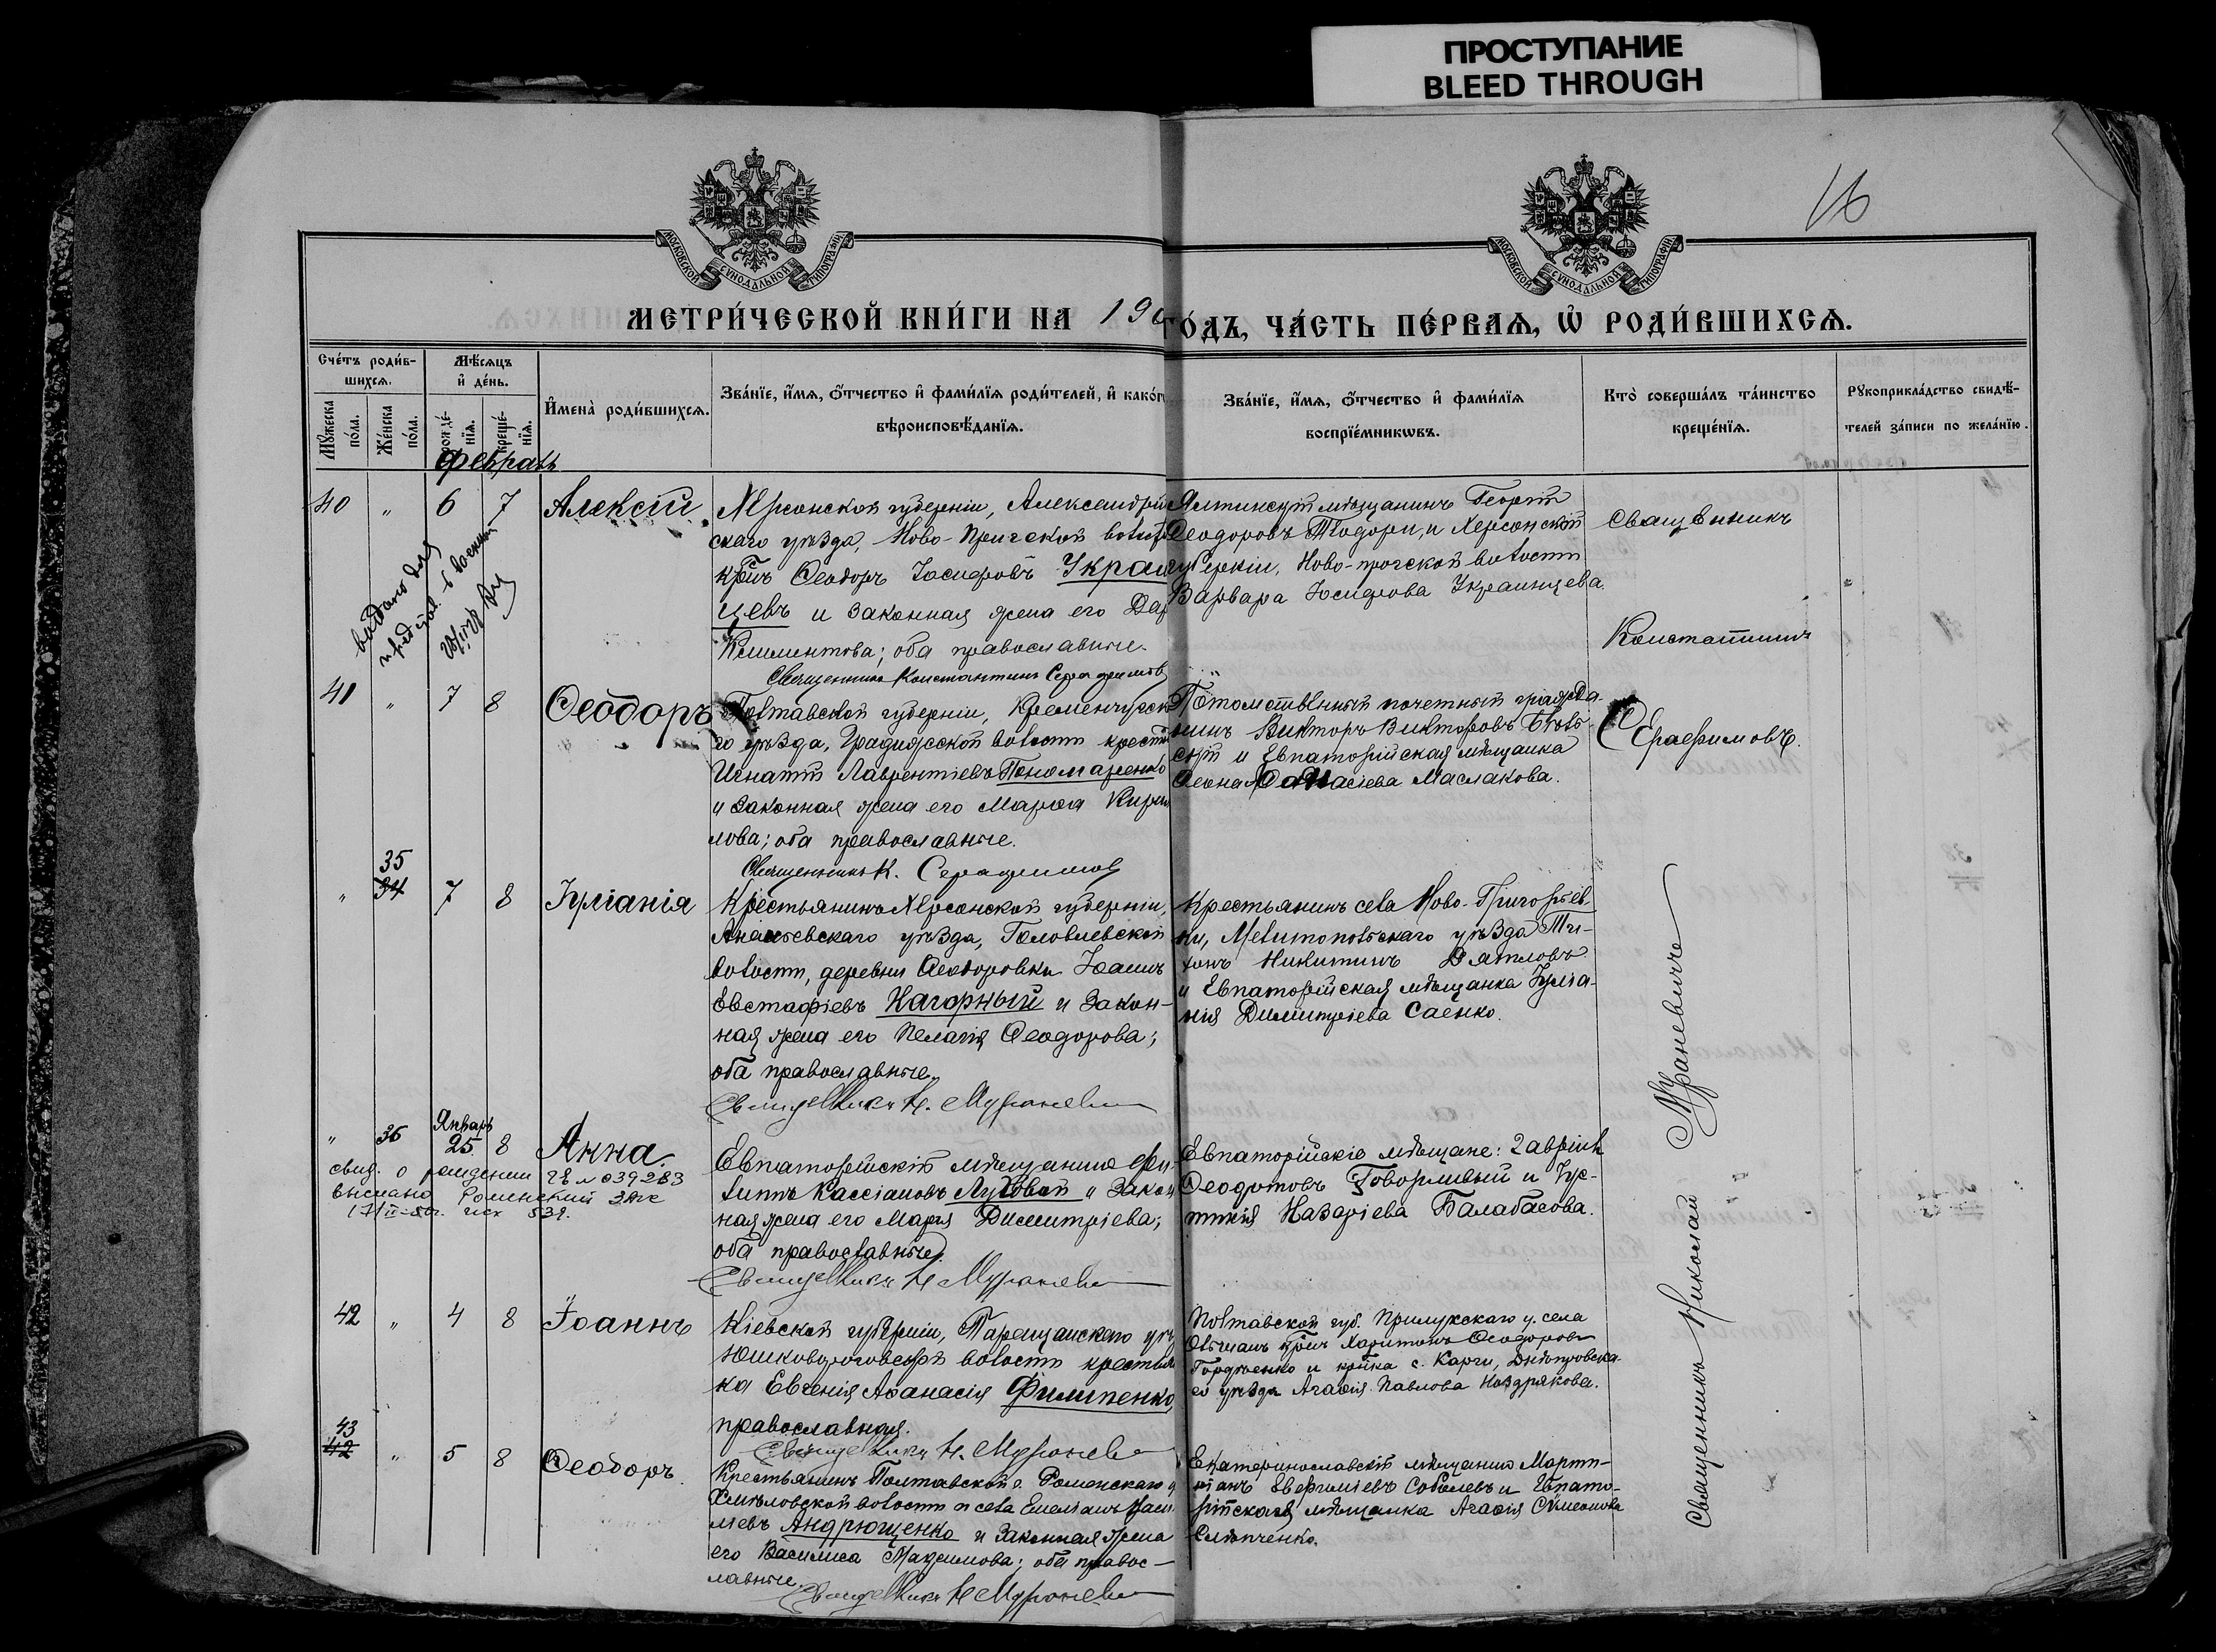 ПРОСТУПАНИЕ
BLEED THROUGH
16
МОСКОВСКОЙ СѴНОДАЛЬНОЙ ТИПОГРАФІИ
МОСКОВСКОЙ СѴНОДАЛЬНОЙ ТИПОГРАФІИ
МЕТРИ́ЧЕСКОЙ КНИ́ГИ НА 190
ГО́ДЪ, ЧА́СТЬ ПЕ́РВАѦ, Ѡ҆ РОДИ́ВШИХСѦ.
Сче́тъ роди́в-
шихсѧ.
Мѣ́сѧцъ
и҆ де́нь.
Мꙋ́жеска
по́ла.
Же́нска
по́ла.
рожде́-
нїѧ.
креще́-
нїѧ.
И҆мена̀ роди́вшихсѧ.
Зва́нїе, и҆́мѧ, ѻ҆́тчество и҆ фами́лїѧ роди́телей, и҆ како́гѡ
вѣроисповѣ́данїѧ.
Зва́нїе, и҆́мѧ, ѻ҆́тчество и҆ фами́лїѧ
воспрїе́мникѡвъ.
Кто̀ соверша́лъ та́инство
креще́нїѧ.
Рꙋкоприкла́дство свидѣ́-
телей за́писи по жела́нїю.
Февраль
40 " 6 7 Алексій
Херсонской губерніи, Александрій
скаго уѣзда, Ново-Пражской волости
кр-нъ Ѳеодоръ Іосифовъ Украин
цевъ и законная жена его Дар
Климентова; оба православные.
Священникъ Константинъ Серафимовъ
Ялтинскій мѣщанинъ Георгій
Ѳеодоровъ Тодори, и Херсонской
губерніи, Ново-пражской волости
Варвара Іосифова Украинцева.
Священникъ
Константинъ
Серафимовъ.
выдано для
41 " 7 8 Ѳеодоръ
Полтавской губерніи, Кременчугска
го уѣзда, Градижской волости крест-нъ
Игнатій Лаврентіевъ Пономаренко
и законная жена его Марѳа Кири
лова; оба православные.
Священникъ К. Серафимовъ
Потомственный почетный гражда-
нинъ Викторъ Викторовъ Бѣль-
скій и Евпаторійская мѣщанка
Ѳеона Аѳанасіева Маслакова.
" 35 34 7 8 Іуліанія
Крестьянинъ Херсонской губерніи,
Ананьевскаго уѣзда, Головлевской
волости, деревни Ѳеодоровки Іоаннъ
Евстафіевъ Нагорный и закон-
ная жена его Пелагія Ѳеодорова;
оба православные.
Священникъ Н. Мураневичъ
Крестьянинъ села Ново-Григорьев-
ки, Мелитопольскаго уѣзда Ти-
хонъ Никитинъ Дятловъ
и Евпаторійская мѣщанка Іуліа-
нія Димитріева Саенко.
" 36 Январь 25 8 Анна.
свид. о рождении ЧЕ № 039283
выслано Роменский ЗАГС
17/II-50г. исх 539.
Евпаторійскій мѣщанинъ Фи-
липпъ Кассіановъ Луговой и закон
ная жена его Марія Димитріева;
оба православные.
Священникъ Н. Мураневичъ
Евпаторійскіе мѣщане: Гавріилъ
Ѳеодотовъ Говорливый и Іус-
тинія Назаріева Балабасова.
42 " 4 8 Іоаннъ
Кіевской губерніи, Таращанскаго уѣз
Юшковорогской волости крестьян
ка Евгенія Аѳанасія Филипенко,
православная.
Священникъ Н. Мураневичъ
Полтавской губ. Прилукскаго у. села
кр-нъ Харитонъ Ѳеодоровъ
Гордѣенко и кр-нка с. Карги, Днѣпровска-
го уѣзда Агаѳія Павлова Ноздрякова.
43 42 " 5 8 Ѳеодоръ
Крестьянинъ Полтавской г. Роменскаго у
Хмѣловской волости и села Емеліанъ Васи
ліевъ Андрющенко и законная жена
его Василиса Максимова; оба правос-
лавные.
Священникъ Н. Мураневичъ
Екатеринославскій мѣщанинъ Марти-
ніанъ Евфиміевъ Соболевъ и Евпато-
рійская мѣщанка Агаѳія Симеонова
Слѣпченко.
Священникъ Николай Мураневичъ